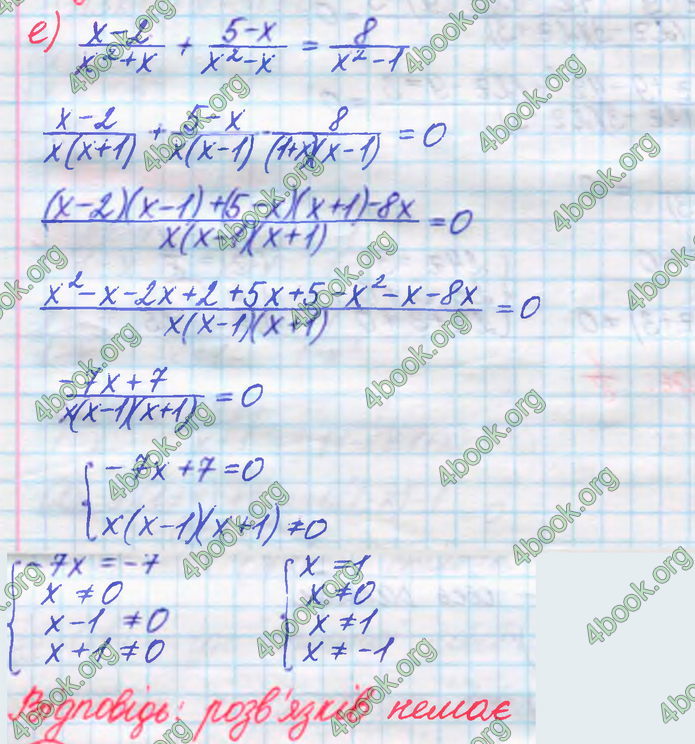 е) (x-2)/(x²+x) + (5-x)/(x²-x) = 8/(x²-1)
(x-2)/(x(x+1)) + (5-x)/(x(x-1)) - 8/((1+x)(x-1)) = 0
((x-2)(x-1)+(5-x)(x+1)-8x)/(x(x-1)(x+1)) = 0
(x²-x-2x+2+5x+5-x²-x-8x)/(x(x-1)(x+1)) = 0
(-7x+7)/(x(x-1)(x+1)) = 0
{ -7x+7=0
x(x-1)(x+1)≠0
{ -7x=-7
x≠0
x-1≠0
x+1≠0
{ x=1
x≠0
x≠1
x≠-1
Відповідь: розв'язків немає
4book.org